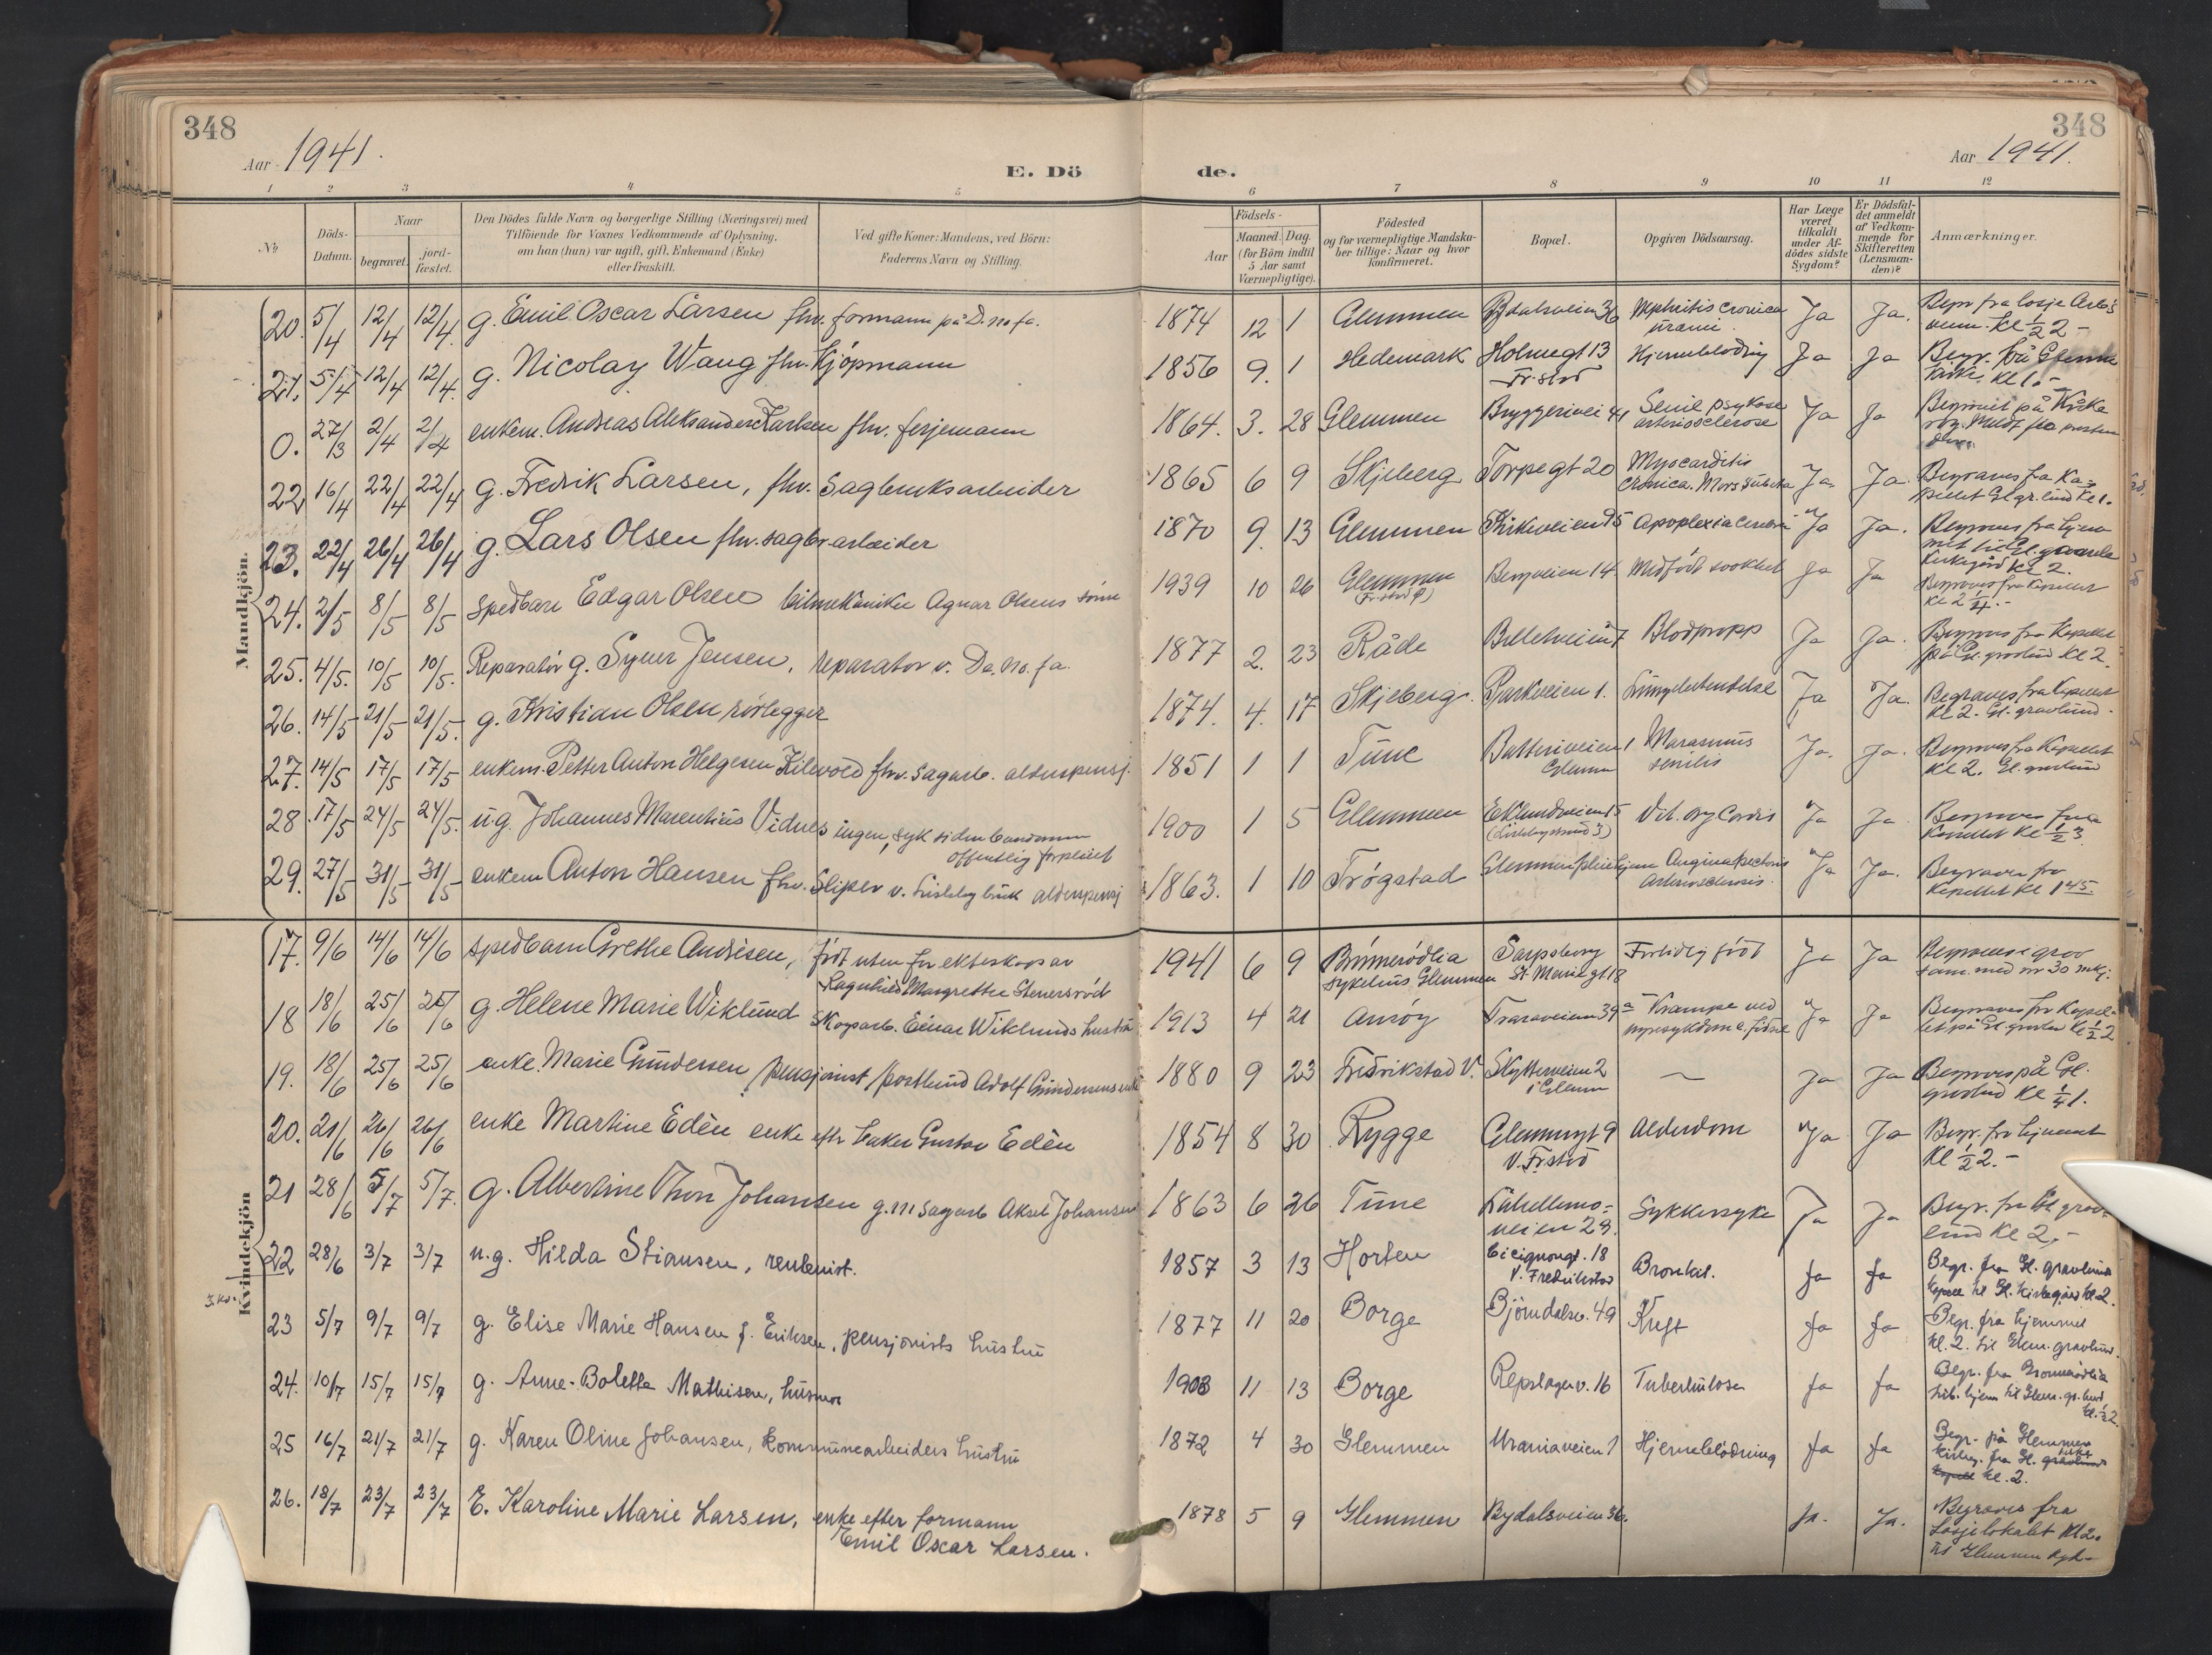 348
Aar 1941.
E. Dö
de.
348
Aar 1941.
1 2 3 4 5 6 7 8 9 10 11 12
No
Döds-Datum.
Naar
begravet.
jord-fæstet.
Den Dödes fulde Navn og borgerlige Stilling (Næringsvei) med
Tilföiende for Voxnes Vedkommende af Oplysning,
om han (hun) var ugift, gift, Enkemand (Enke)
eller fraskilt.
Ved gifte Koner: Mandens, ved Börn:
Faderens Navn og Stilling.
Födsels-
Aar
Maaned. Dag.
(for Börn indtil
5 Aar samt
Værnepligtige).
Födested
og for værnepligtige Mandska-
ber tillige: Naar og hvor
konfirmeret.
Bopæl.
Opgiven Dödsaarsag.
Har Læge
været
tilkaldt
under Af-
dödes sidste
Sygdom?
Er Dödsfal-
det anmeldt
af Vedkom-
mende for
Skifteretten
(Lensman-
den)?
Anmærkninger.
Mandkjön.
20. 5/4 12/4 12/4. g. Emil Oscar Larsen fhv. formann på D. no fa. 1874 12 1 Glemmen Bydalsveien 36 Nephritis cronica Ja Ja. Begr fra losje
urami kl ½ 2 -
21. 5/4 12/4 12/4. g. Nicolay Wang fhv. Kjöpmann 1856 9. 1 Hedemark Holmegt 13 Hjerneblödning Ja Ja Begr. på Glemme
Fr.stad kirke kl 1. -
0. 27/3 2/4 2/4 enkem. Andreas Aleksander Karlsen fhv. ferjemann 1864. 3. 28 Glemmen Bryggeriveien 41 Senil psykose Ja Ja
arteriosclerose
22 16/4 22/4 22/4 g. Fredrik Larsen, fhv. Sagbruksarbeider 1865 6 9 Skjeberg Torpegt 20 Myocarditis Ja Ja. Begraves fra Ka-
cronica. Mors subita pellet Gl gr.lund kl 1.
23. 22/4 26/4 26/4 g. Lars Olsen fhv. sagbr.arbeider 1870 9. 13 Glemmen Kirkeveien 75 Apoplexia cerebri Ja Ja. Begraves fra hjem
met til Gl. gamle
kirkegård kl 2.
24. 2/5 8/5 8/5 spedbarn Edgar Olsen bilmekaniker Agnar Olsens sönn 1939 10 26 Glemmen Bergveien 14 Medfödt svakhet Ja Ja Begraves fra kapellet
kl 2 ¼. -
25. 4/5. 10/5 10/5. Reparatör g. Syver Jensen, reparatör v. De. no. fa. 1877 2. 23 Råde Blodpropp Ja Ja. Begraves fra Kapellet
på Gl. gravlund kl 2.
26. 14/5 21/5 21/5. g. Kristian Olsen rörlegger 1874. 4. 17 Skjeberg. Parkveien 1. Lungebetendelse Ja Ja. Begraves fra Kapellet
kl 2. Gl. gravlund.
27. 14/5 17/5 17/5 enkem. Petter Anton Helgesen Kilevold fhv. sagarb. alderspensj. 1851 1 1 Tune Batteriveien 1 Marasmus Ja. Ja. Begraves fra Kapellet
Glemm senilis kl 2. Gl. gravlund
28 17/5 24/5 24/5. u.g. Johannes Marentius Vidnes ingen, syk siden barndommen 1900 1 5 Glemmen Eklundveien 15 Vit. org. cordis Ja Ja Begraves fra
offentlig forpleiet Kapellet kl ½ 3.
29. 27/5 31/5 31/5 enkem Anton Hansen fhv. Sliper v. Lisleby bruk alderspensj 1863. 1 10 Trögstad Glemmen pleiehjem Angina pectoris Ja Ja. Begraves fra
Arteriosclerosis. Kapellet kl 1 45.
Kvindekjön
17. 9/6 14/6 14/6 spedbarn Grethe Andresen, födt uten for ekteskap av 1941 6 9 Brönnerödlia Sarpsborg Fortidlig födt Ja Ja Begraves i grav
Ragnhild Margrethe Stenersröd sykehus Glemmen St. Mariegt 18 sam. med nr 30 mkj.
18 18/6 25/6 25/6 g. Helene Marie Wiklund skogsarb. Einar Wiklunds hustru 1913 4 21 Traraveien 39a Krampe ved Ja Ja Begraves fra Kapel-
nyresykdom e. födsel let på Gl gravlun kl ½ 2
19. 18/6 25/6 25/6 enke. Marie Gundersen pensjonist/postbud Adolf Gundersens enke 1880 9 23 Fredrikstad V. Skytterveien 2 — Ja Ja Begraves på Gl.
i Glemm gravlund kl ¼ 1.
20. 21/6 26/6 26/6 enke Martine Edèn enke eftr baker Gustav Edèn 1854 8 30 Rygge Glemmengt 9 Alderdom Ja Ja Begr. fra hjemmet
V. Fr.stad kl ½ 2. -
21 28/6 5/7 5/7. g. Albertine Thon Johansen g. m sagarb Aksel Johansen 1863 6 26 Tune Sukkersyke Ja Ja Begr. fra Gl grav-
veien 29. lund kl 2. -
22 28/6 3/7 3/7 u.g. Hilda Stiansen, rentenist. 1857 3 13 Horten Cicignongt. 18 Bronkit. Ja Ja Begr. fra Gl. gravlund
V. Fredrikstad kapell til Gl. Kirkegård kl 2.
23 5/7 9/7 9/7 g. Elise Marie Hansen f. Eriksen, pensjonists hustru 1877 11 20 Borge Björndalsv. 49 Kreft Ja Ja Begr. fra hjemmet
kl. 2. til Glem. gravlund.
24. 10/7 15/7 15/7 g. Anne-Bolette Mathisen, husmor 1903 11 13 Borge Repslagerv. 16 Tuberkulose Ja Ja Begr. fra Brönnerödlia
tub. hjem til Glem. gr. lund
kl. ½ 2.
25 16/7 21/7 21/7 g. Karen Oline Johansen, kommunearbeiders hustru 1872 4 30 Glemmen Uraniaveien 1 Hjerneblödning Ja Ja Begr. på Glemmen
kirkeg. fra Gl. kirke gravlunds
kapell kl. 2.
26. 18/7 23/7 23/7 E. Karoline Marie Larsen, enke efter formann 1878 5 9 Glemmen Bydalsveien 36. Ja. Ja. Begraves fra
Emil Oscar Larsen. Losjelokalet kl 2.
til Glemmen kgd.